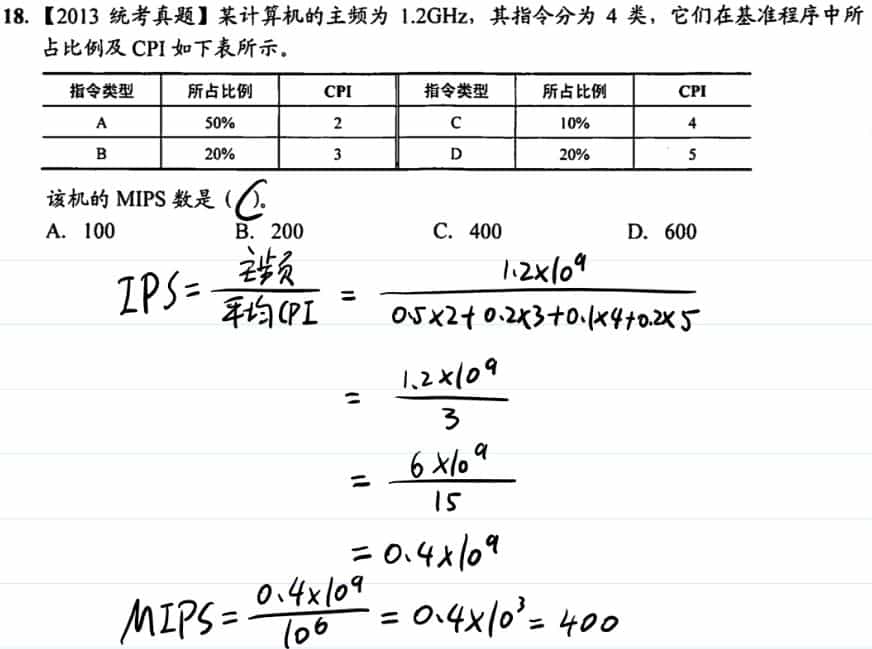 18.【2013 统考真题】某计算机的主频为 1.2GHz，其指令分为 4 类，它们在基准程序中所
占比例及 CPI 如下表所示。
指令类型 所占比例 CPI 指令类型 所占比例 CPI
A 50% 2 C 10% 4
B 20% 3 D 20% 5
该机的 MIPS 数是（C）。
A. 100 B. 200 C. 400 D. 600
IPS = 主频 / 平均CPI = 1.2×10⁹ / 0.5×2+0.2×3+0.1×4+0.2×5
= 1.2×10⁹ / 3
= 6×10⁹ / 15
= 0.4×10⁹
MIPS = 0.4×10⁹ / 10⁶ = 0.4×10³ = 400